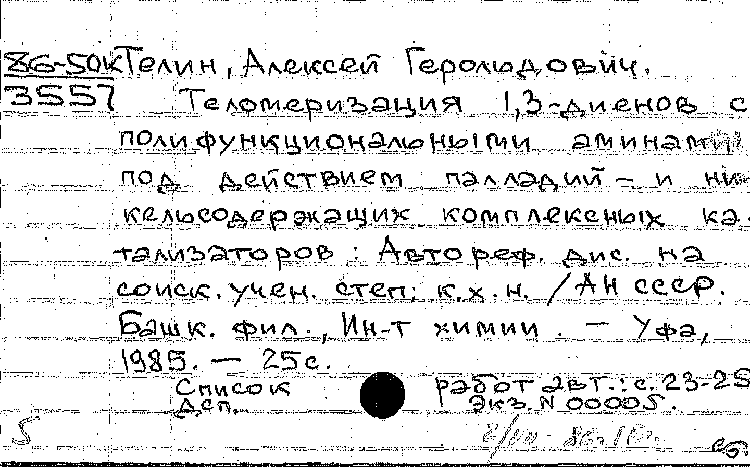 86-50к Телин, Алексей Герольдович.
3557 Теломеризация 1,3-диенов с
полифункциональными аминами
под действием палладий- и ни-
кельсодержащих комплексных ка-
тализаторов: Автореф. дис. на
соиск. учен. степ. к.х.н. / АН СССР.
Башк. фил., Ин-т химии. - Уфа,
1985. - 25с.
Список работ авт.: с. 23-25
Деп. Экз. N 00005.
5